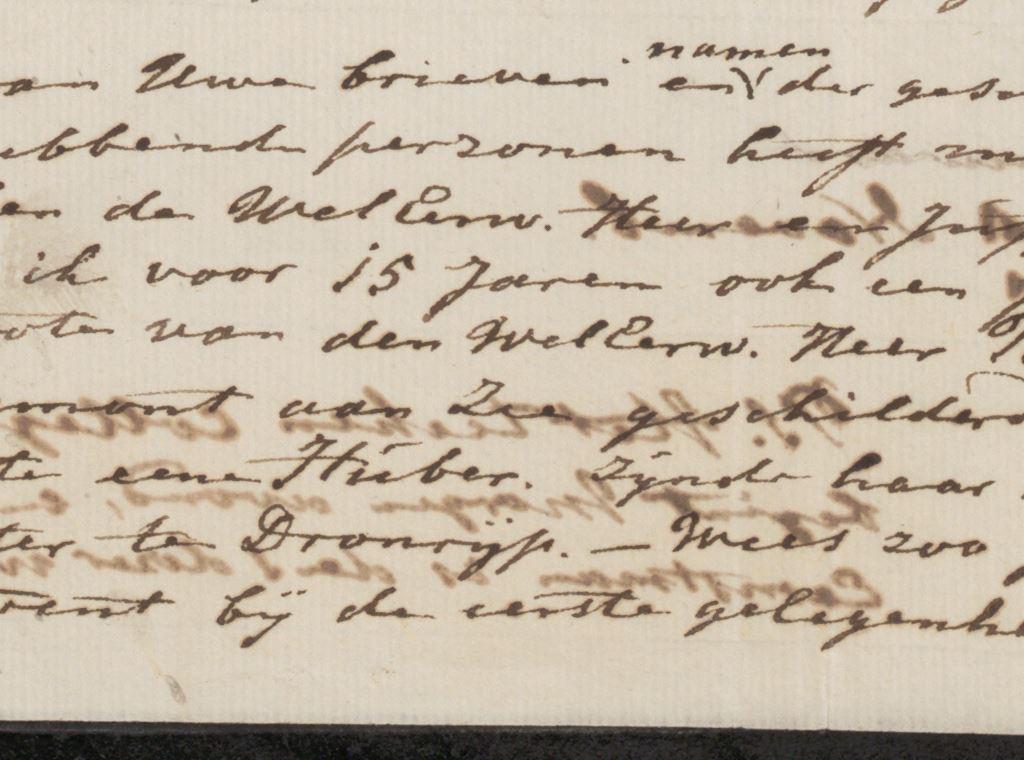 namen
an Uwe brieven en der gese
ebbende perzonen heeft m
en de WelEerw. Heer en Juf
ik voor 15 Jaren ook een
ote van den WelEerw. Heer
mont aan Zee geschilderd
te eene Huber. zijnde haar
ter te Dronrijp. — Wees zoo
vent bij de eerste gelegenhe